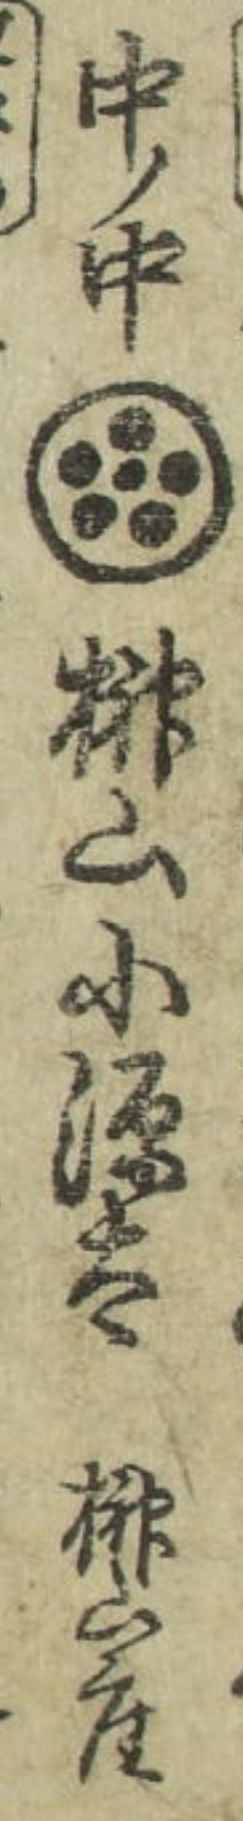 中ノ中 榊山小源太 榊山座